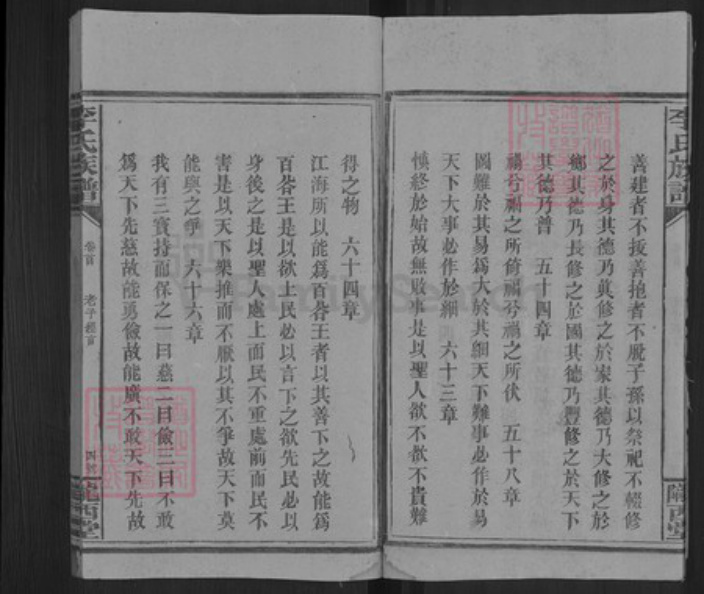 李氏族譜
善建者不拔善抱者不脫子孫以祭祀不輟修
之於身其德乃眞修之於家其德乃大修之於
鄉其德乃長修之於國其德乃豐修之於天下
其德乃普　五十四章
禍兮福之所倚福兮禍之所伏　五十八章
圖難於其易爲大於其細天下難事必作於易
天下大事必作於細　六十三章
愼終於始故無敗事是以聖人欲不欲不貴難
隴西堂
得之物　六十四章
江海所以能爲百谷王者以其善下之故能爲
百谷王是以欲上民必以言下之欲先民必以
身後之是以聖人處上而民不重處前而民不
害是以天下樂推而不厭以其不爭故天下莫
能與之爭　六十六章
我有三寶持而保之一曰慈二曰儉三曰不敢
爲天下先慈故能勇儉故能廣不敢天下先故
李氏族譜
卷首　老子經言
隴西堂
FamilySearch